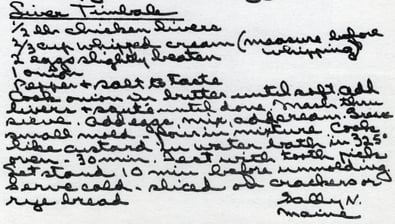 Liver Timbale
1/2 lb chicken livers
2/3 cup whipped cream (measure before
whipping)
2 eggs slightly beaten
1 onion
Pepper + salt to taste
Cook onion in butter until soft add
livers + sauté until done. Mash thru
sieve. Add eggs, mix, add cream. Grease
small mold - pour in mixture Cook
like custard in water bath in 325°
oven - 30 min. Test with tooth pick
Let stand 10 min before unmolding.
Serve cold - sliced on crackers or
rye bread
Sally N.